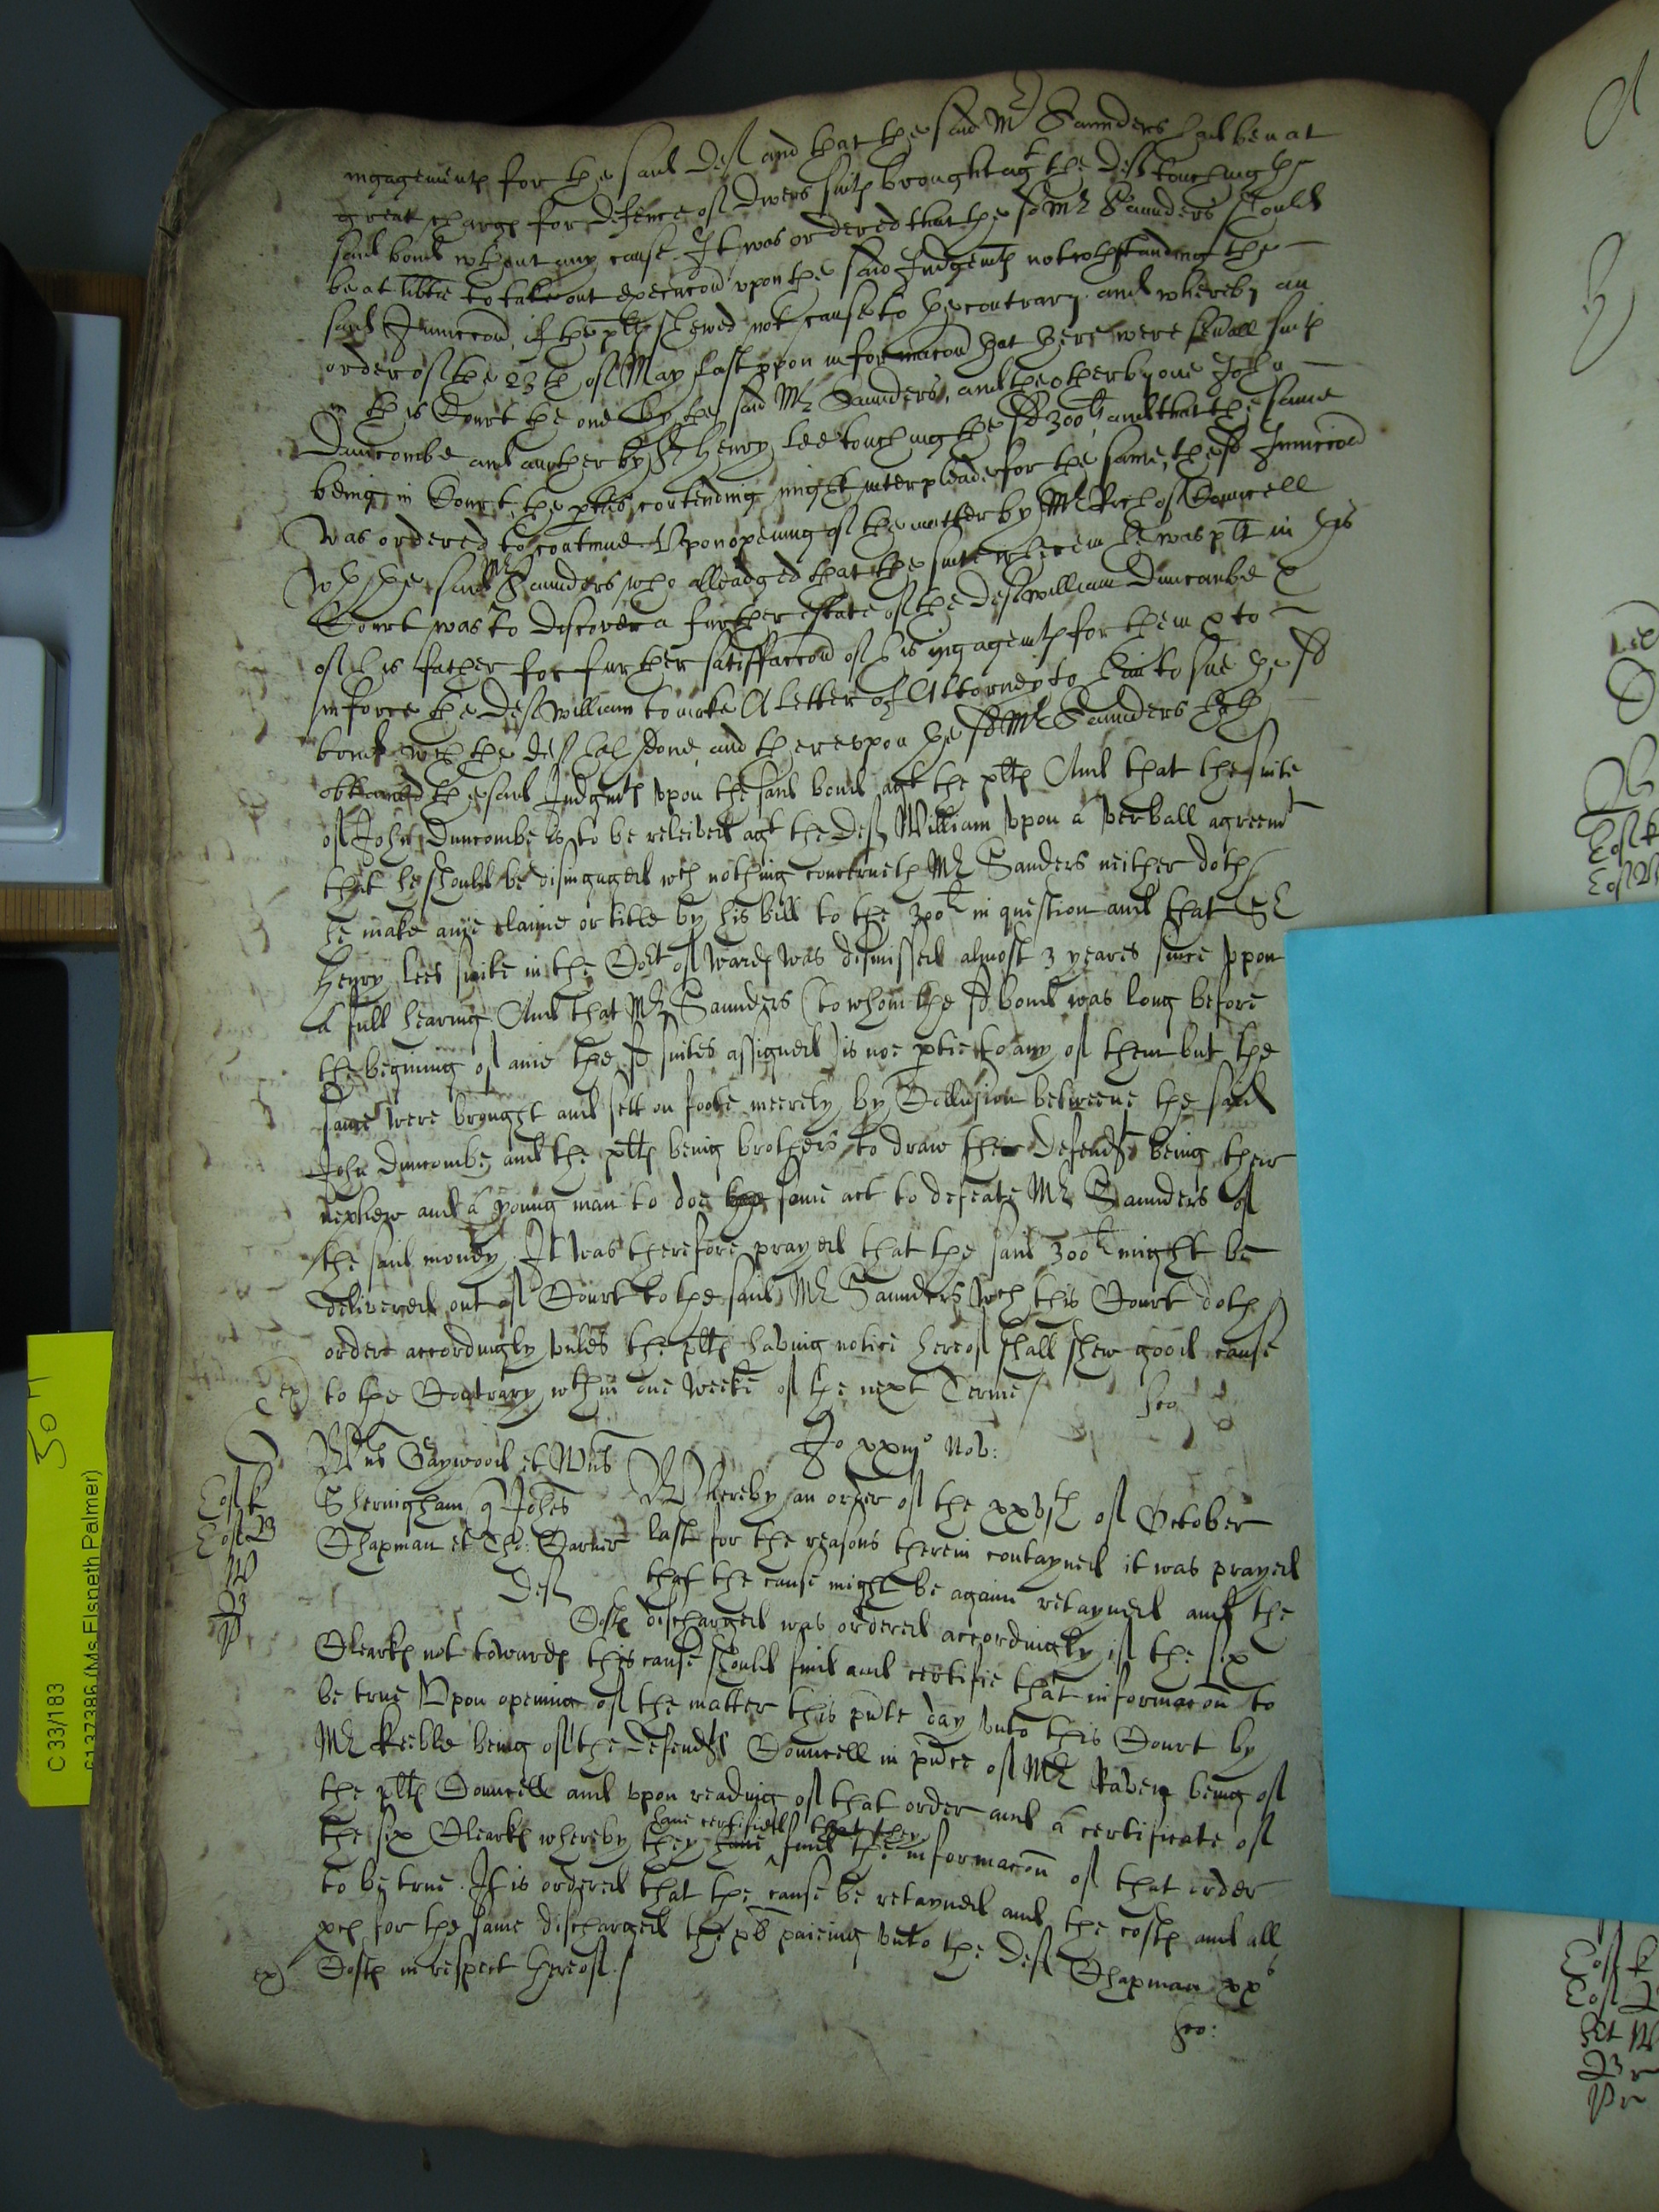 ingagementes for the said Def and that the said Mr Saunders had ben at
great charge for defence of divers suites brought agt the Deft touching the
said bond wthout any cause It was ordered that the sd Mr Saunders should
be at libtie to take out execucon upon the said Judgemt notwthstanding the
said Iniuccon, if the plts shewed not cause to the contrary and whereby an
order of the 23th of May last upon informacon that there were severall suites
in this Court the one by the said Mr Saunders, and the other by one John
Duncombe and another by Sr Henry Lee touching the sd 300li and that the same
being in Court, the pties contending might interpleade for the same, the sd Iniuccon
was ordered to continue Upon opening of the matter by Mr Councell
wth the said Mr Saunders who alleadged that the suite wherein he was plt in this
Court was to discover a further estate of the Def William Duncombe &
of his father for further satisfaccon of his ingagemts for them & to
inforce the Def William to make A Letter of Attorney to him to sue the sd
bond wch the Def had done, and thereupon the sd Mr Saunders hath
obtained the said Judgmt upon the said bond agt the plts And that the suite
of John Duncombe is to be releived agt the Def William upon a verball agreemt
that he should be disingaged wch nothing concerneth Mr Sanders neither doth
he make anie claime or title by his bill to the 300li in question and that Sr
Henry Lees suite in the Cort of wards was dismissed almost 3 yeares since upon
a full hearing And that Mr Saunders (to whom the sd bond was long before
the begining of anie the sd suites assigned) is noe ptie to any of them but the
same were brought and sett on foote meerely by Collusion betweene the said
John Duncombe and the plts being brothers to draw the Defendt being their
nephew and a young man to doe some act to defeate Mr Saunders of
the said money. It was therefore prayed that the said 300li might be
delivered out of Court to the said Mr Saunders wch this Court doth
order accordingly unles the plts having notice hereof shall shew good cause
ex) to the Contrary wthin one weeke of the next Terme /
Jo xxiijo Nov:
Wms Gaywood et Wms
Sheringham q Johes
Chapman et Tho: Carter
Def
Whereby an order of the xxvjth of October
last for the reasons therein contayned it was prayed
that the cause might be againe retayned and the
Costs discharged was ordered accordingly if the six
Clearks not towards this cause should find and certifie that informacon to
be true Upon opening of the matter this pnte day unto this Court by
Mr Keeble being of the defendts Councell in pnce of Mr Raven being of
the plts Councell and upon reading of that order and a certificate of
the six Clearks whereby they have certified that they find the informacon of that order
to be true. It is ordered that the cause be retayned and the costs and all
pces for the same discharged the pl paieing unto the Def Chapman xxs
ex) Costs in respect hereof /
C 33/183
(Ms Elsneth Palmer)